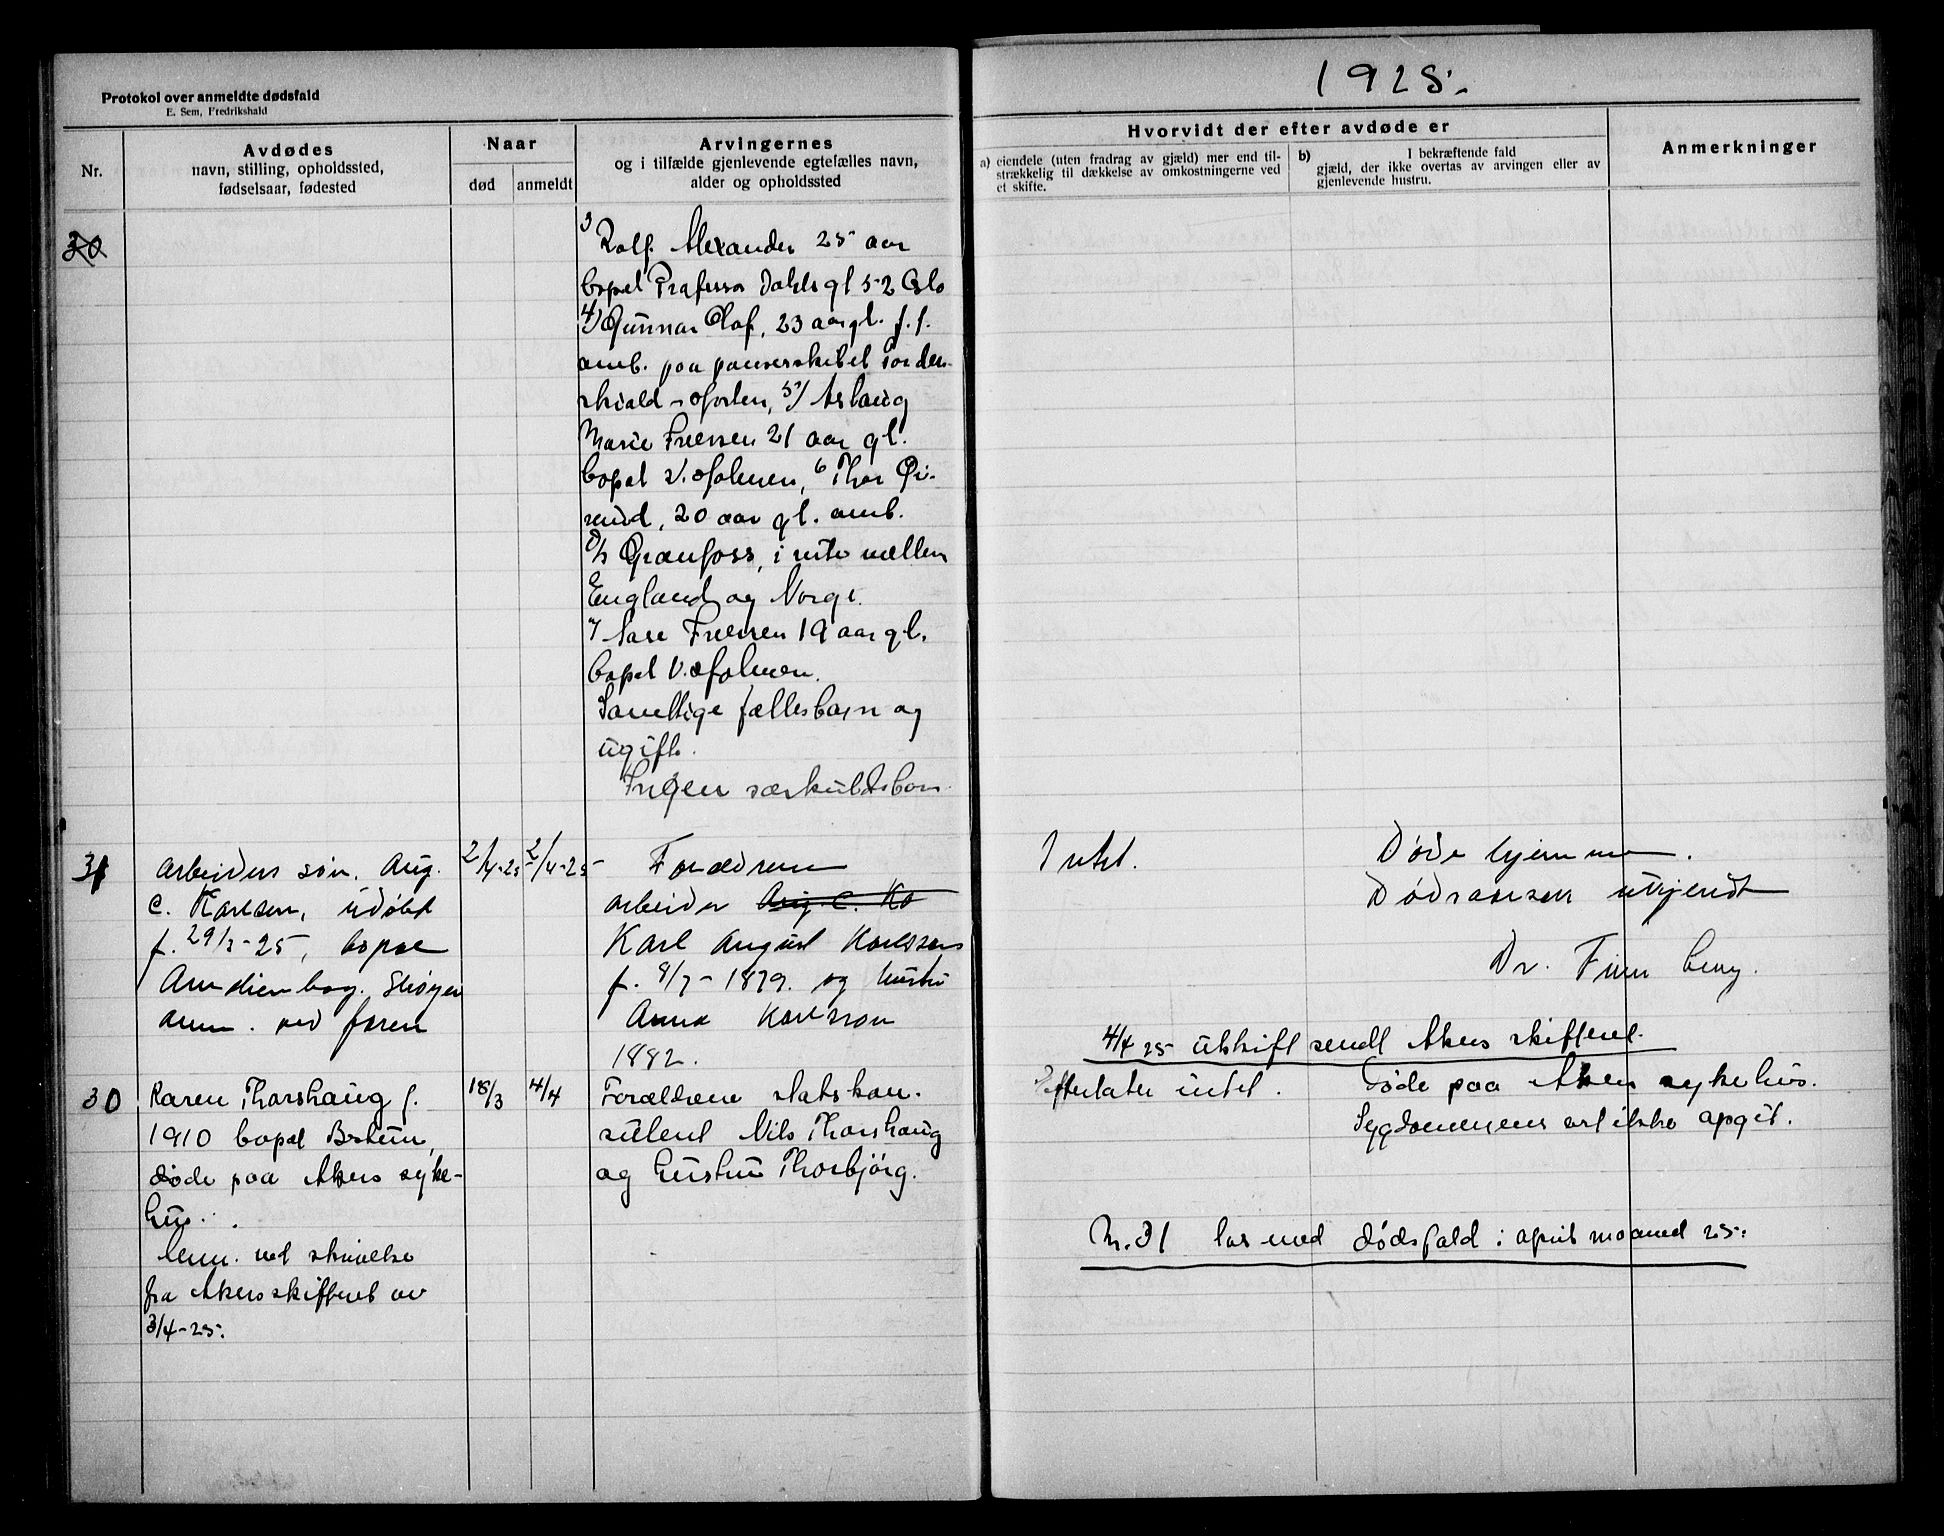 Protokol over anmeldte dødsfald
E. Sem, Fredrikshald
1925.
Nr.
Avdødes
navn, stilling, opholdssted,
fødselsaar, fødested
Naar
død
anmeldt
Arvingernes
og i tilfælde gjenlevende egtefælles navn,
alder og opholdssted
Hvorvidt der efter avdøde er
a) eiendele (uten fradrag av gjæld) mer end til-
strækkelig til dækkelse av omkostningerne ved
et skifte.
b) I bekræftende fald
gjæld, der ikke overtas av arvingen eller av
gjenlevende hustru.
Anmerkninger
30
3 Rolf Alexander 25 aar
bopel Professor Dahls gt 52 Oslo
4/ Gunnar Olaf, 23 aar gl. f. t.
omb. paa panserskibet Torden-
skiold - Horten, 5/ Aslaug
Marie 21 aar gl.
bopel V. Holmen, 6 Thor
20 aar gl. omb.
D/S Granfoss, i rute mellem
England og Norge.
7 19 aar gl.
bopel V. Holmen.
Samtlige fællesbarn og
ugift.
Ingen særkuldsbarn.
31
arbeiders søn. Aug.
C. Karlsen, udøbt
f. 29/3-25, bopæl
anm. ved faren
2/4-25
2/4-25
Forældrene
arbeider Aug. C. Ka
Karl August Karlssen
f. 8/7-1879. og hustru
Anna Karlsson
1882.
Intet.
Døde hjemme.
Dødsaarsak ukjendt
Dr. Finn Berg.
4/4 25 utskrift sendt Akers skifteret.
30
Karen Thorshaug f.
1910 bopæl Bestum,
døde paa Akers syke-
hus.
Anm. ved skrivelse
fra Akers skifteret av
3/4-25.
18/3
4/4
Forældrene statskon-
sulent Nils Thorshaug
og hustru Thorbjørg.
Efterlater intet.
Døde paa Akers sykehus.
Sygdommens art ikke opgit.
Nr. 31 las med dødsfald i april maaned 25.